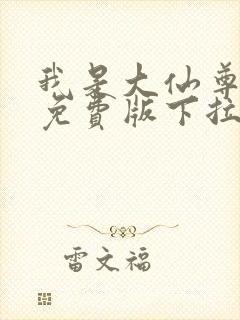 我是大仙尊
免費版下拉
雷文福